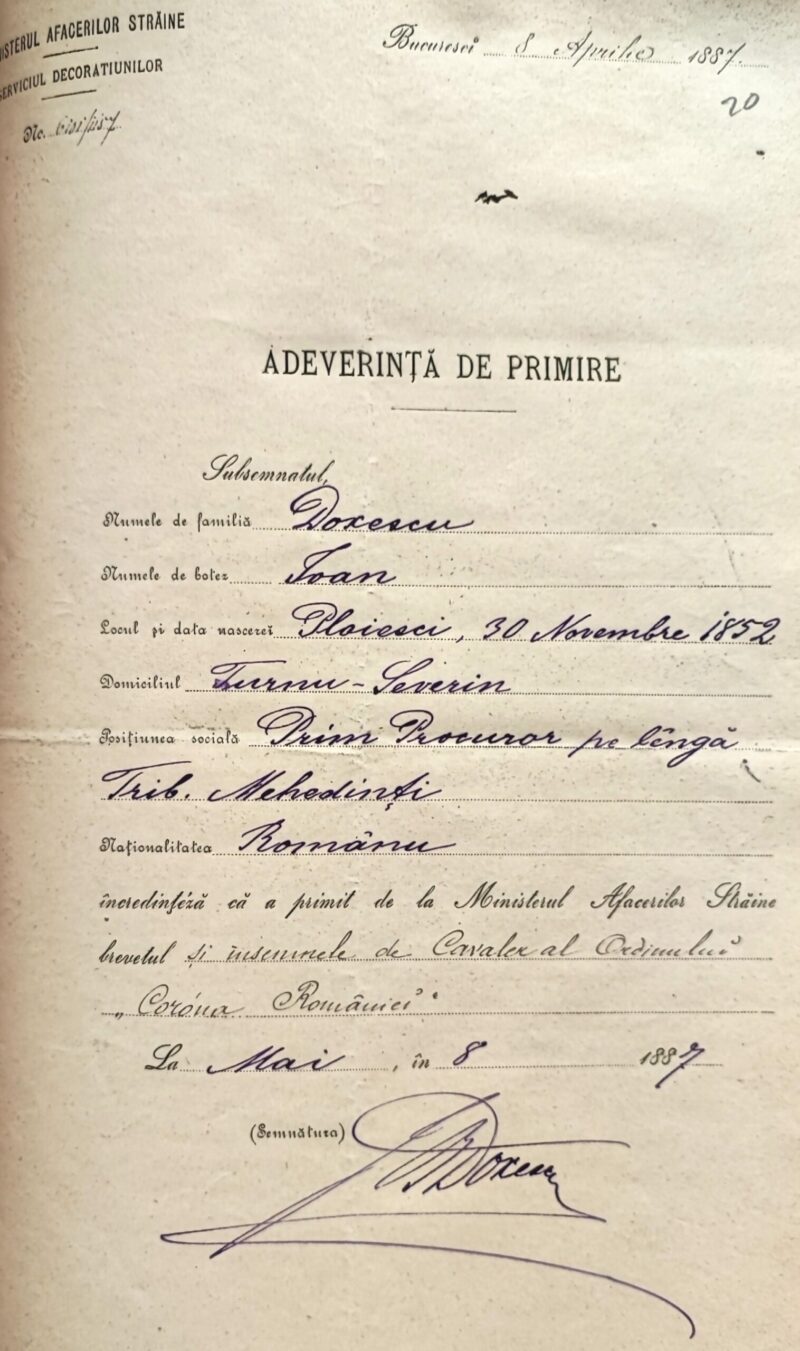 MINISTERUL AFACERILOR STRĂINE
SERVICIUL DECORATIUNILOR
No.
Bucuresci 8 Aprilie 1887.
20
ADEVERINȚĂ DE PRIMIRE
Subsemnatul,
Numele de familiă Doxescu
Numele de botez Ioan
Locul și data nascerei Ploiesci, 30 Novembre 1852
Domiciliul Turnu-Severin
Posițiunea socială Prim Procuror pe lîngă
Trib. Mehedinți
Naționalitatea Românu
încredințéză că a primit de la Ministerul Afacerilor Străine
brevetul și însemnele de Cavaler al Ordinului
„Coróna României"
La Mai, în 8 1887
(Semnătura) Doxescu